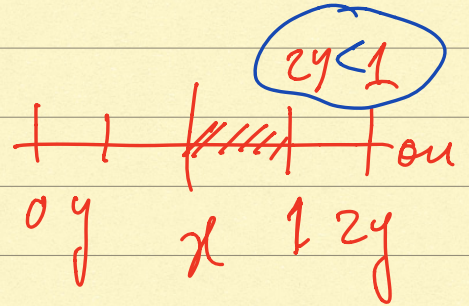 2y<1
0 y x 1 2y